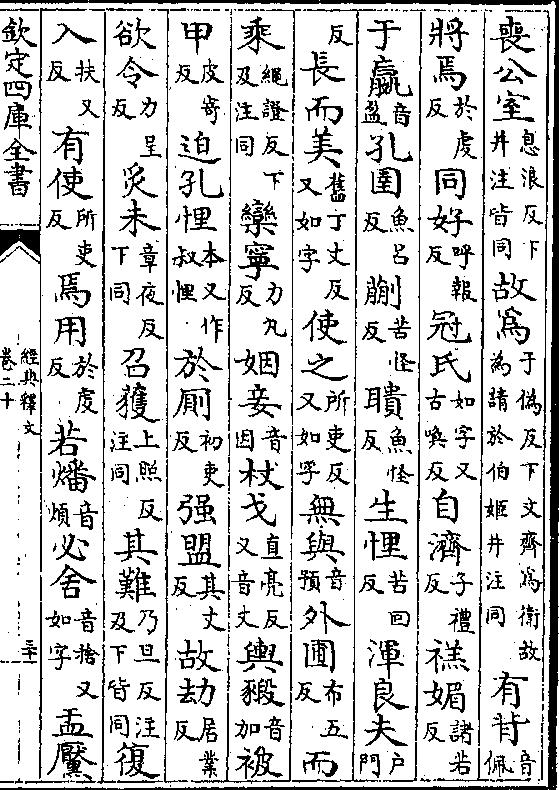 喪公室息浪反下并注皆同故為于偽反下文齊為衛故為請於伯姬并注同有背音佩
將焉於虔反同好呼報反冠氏如字又古喚反自濟子禮反禚媚諸若反
于嬴音盈孔圉魚呂反蒯苦怪反聵魚怪反生悝苦回反渾良夫戶門
反長而美舊丁丈反又如字使之所吏反又如字無與音預外圃布五反而
乘繩證反下及注同欒寧力丸反姻妾音因杖戈直亮反又音丈輿豭音加被
甲皮寄反迫孔悝本又作叔悝於厠初吏反强盟其丈反故劫居業反
欲令力呈反炙未章夜反下同召獲上照反注同其難乃旦反注及下皆同復
入扶又反有使所吏反焉用於虔反若燔音煩必舍音捨又如字盂黶
欽定四庫全書
經典釋文
卷二十
三十